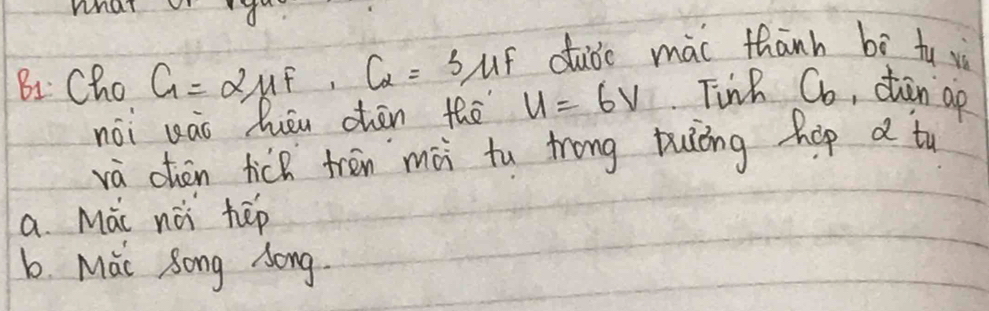 B1: Cho C1 = 2μF, C2 = 3μF được mắc thành bộ tụ và
nối vào hiệu điện thế U = 6V. Tính Cb, điện áp
và điện tích trên mỗi tụ trong trường hợp 2 tụ
a. Mắc nối tiếp
b. Mắc song song.